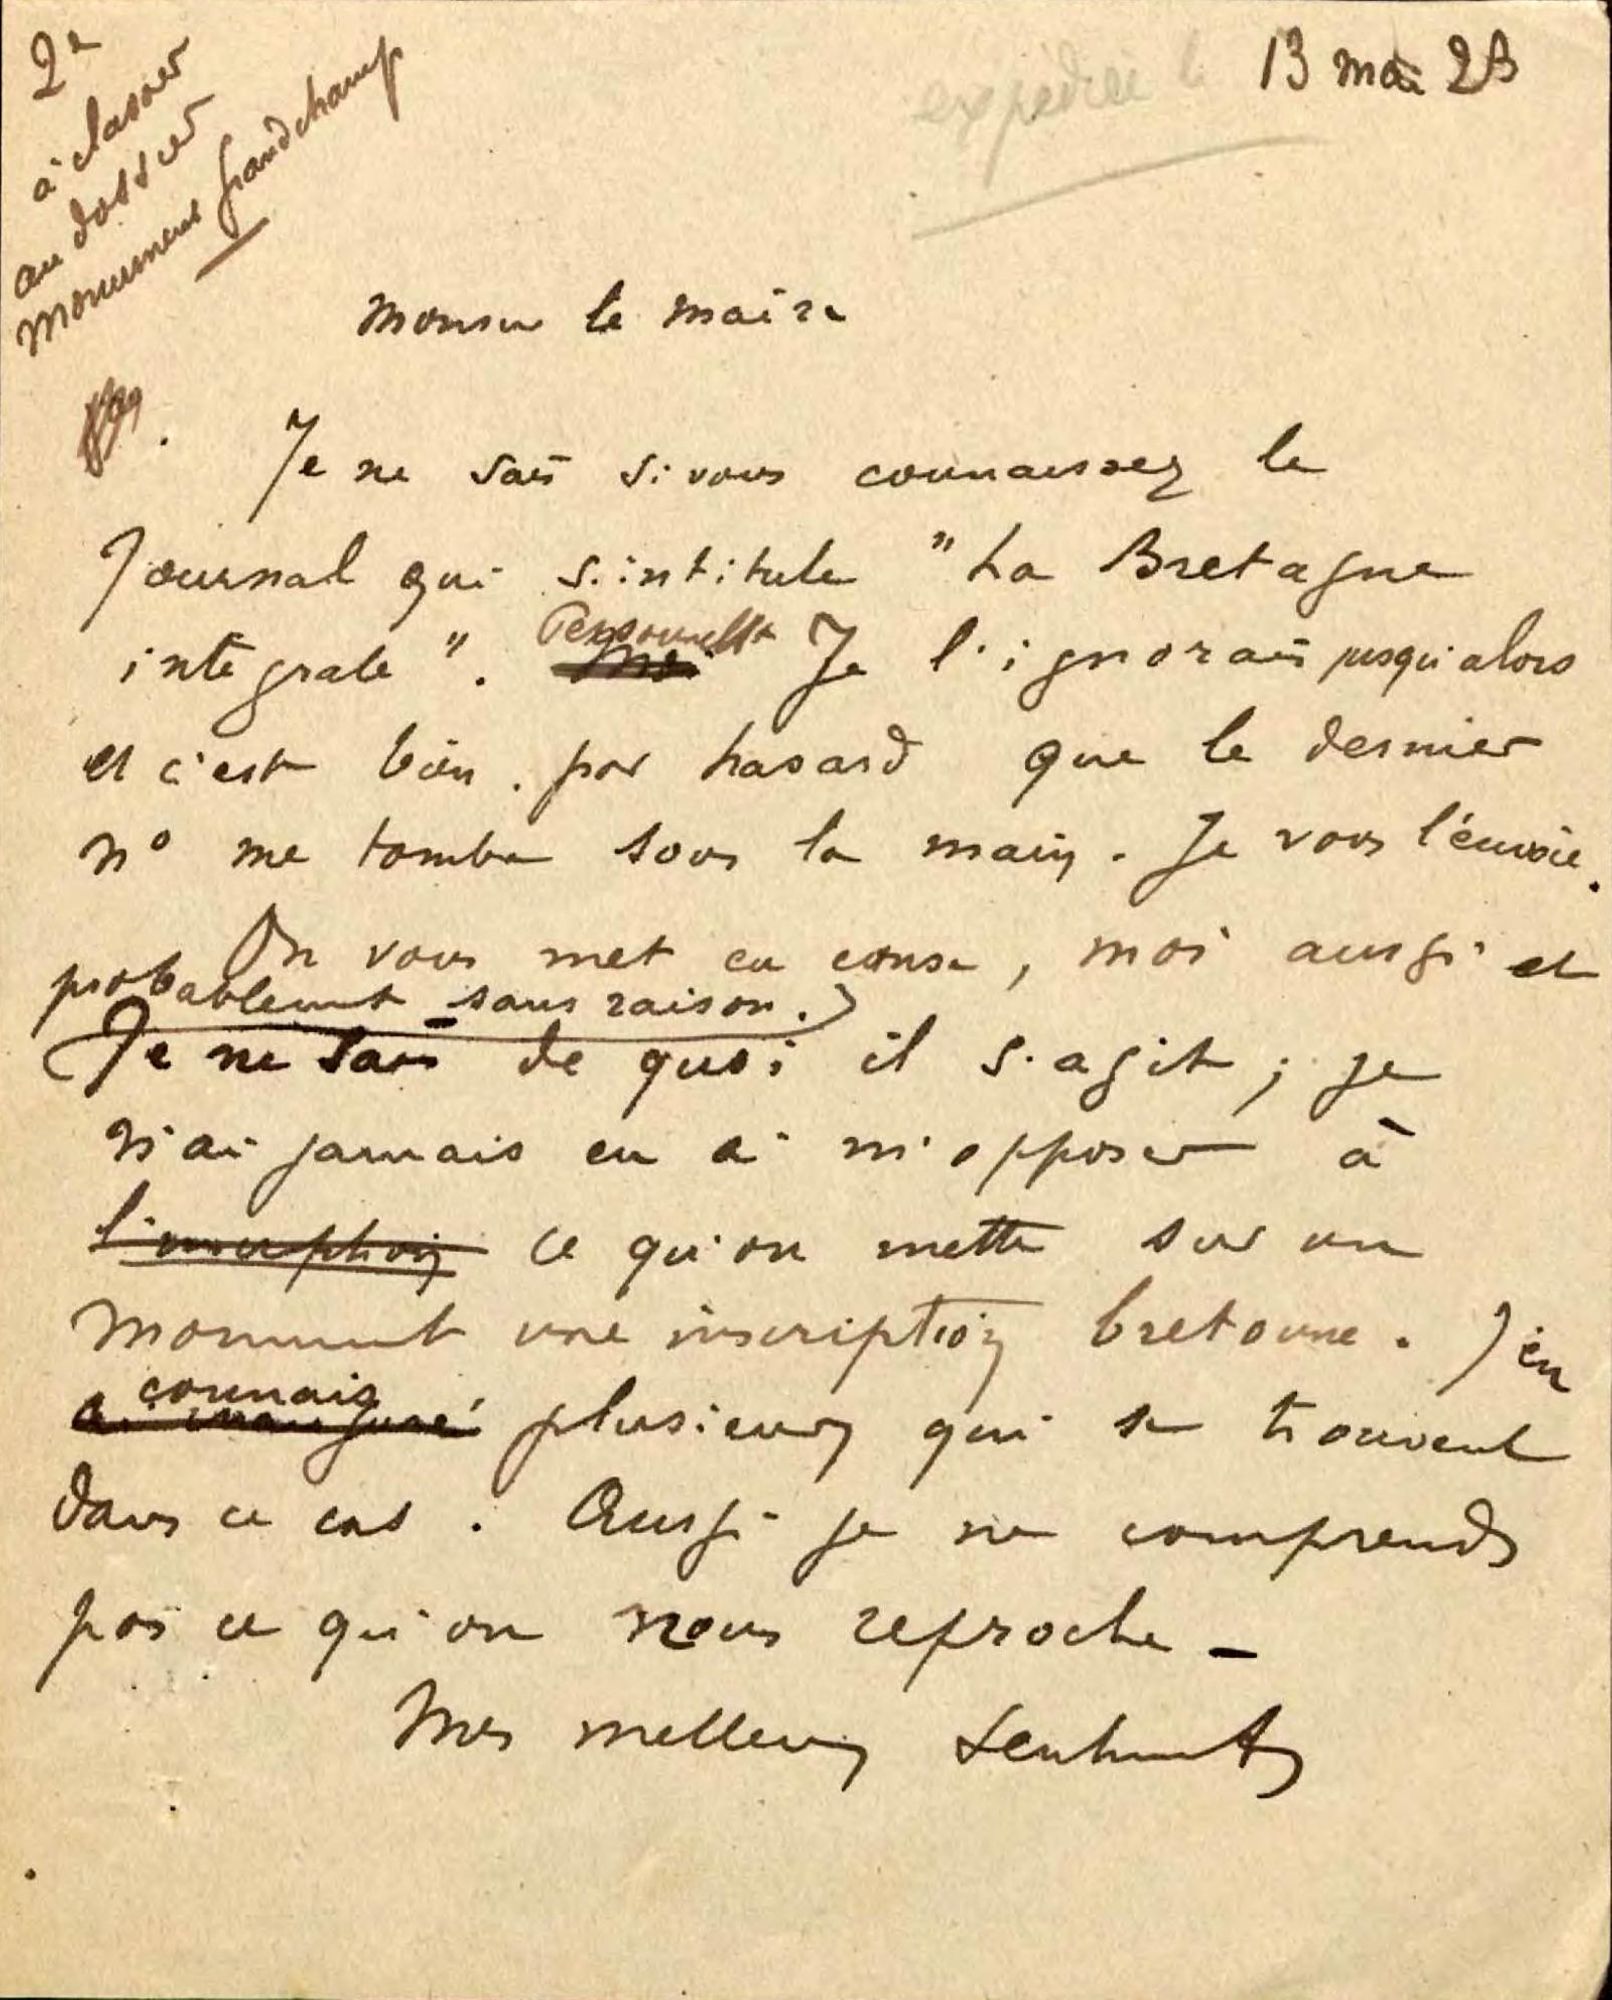 2e
à classer
au dossier
monument Grandchamp
expédiée le 13 mai 23
Monsieur le Maire
Je ne sais si vous connaissez le
Journal qui s'intitule "La Bretagne
intégrale". Personnellt Je l'ignorais jusqu'alors
et c'est bien par hasard que le dernier
n° me tomba sous la main. Je vous l'envoie.
On vous met en cause, moi aussi et
probablement sans raison.
Je ne sais de quoi il s'agit ; je
n'ai jamais eu à m'opposer à
l'inscription ce qu'on mette sur un
monument une inscription bretonne. J'en
connais
ai inauguré plusieurs qui se trouvent
dans ce cas. Aussi je ne comprends
pas ce qu'on nous reproche _
Mes meilleurs sentiments